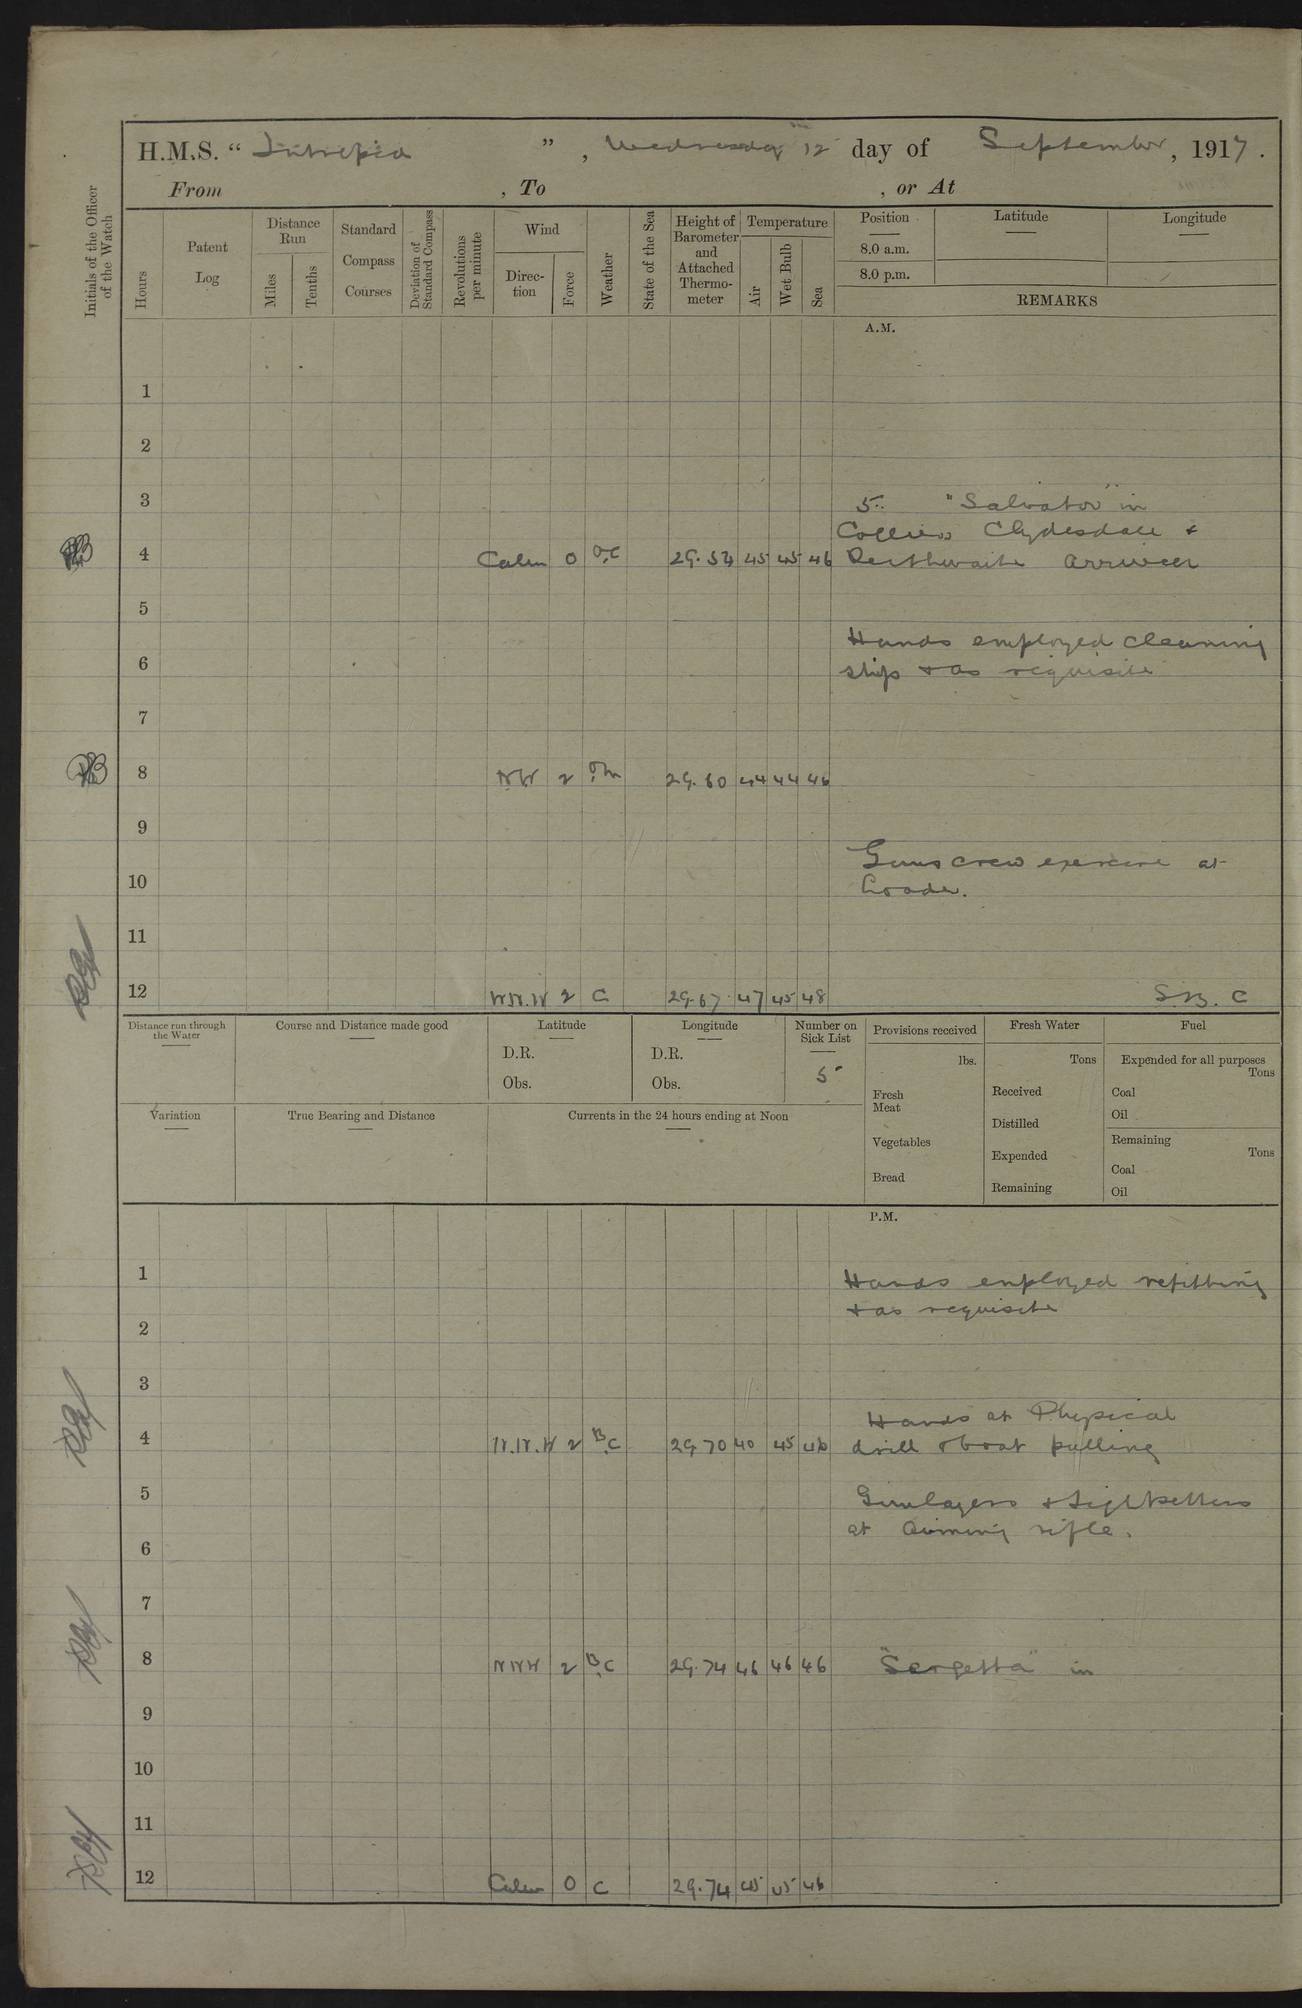 H.M.S. “ Intrepid ”, Wednesday 12th day of September, 1917.
From , To , or At
Initials of the Officer of the Watch
Hours
Patent Log
Distance Run
Miles
Tenths
Standard Compass Courses
Deviation of Standard Compass
Revolutions per minute
Wind
Direction
Force
Weather
State of the Sea
Height of Barometer and Attached Thermometer
Temperature
Air
Wet Bulb
Sea
Position Latitude Longitude
8.0 a.m.
8.0 p.m.
REMARKS
A.M.
1
2
3
5. "Salvator" in
Colliers Clydesdale &
4 Calm 0 o,c 29.54 45 45 46 arrived
5
Hands employed cleaning
6
ship & as requisite
7
8 N.W 2 o,m 29.60 44 44 46
9
Guns crew exercise at
10
Loader.
11
12 W.N.W 2 C 29.67 47 45 48 S.B. C
Distance run through the Water
Course and Distance made good
Latitude
D.R.
Obs.
Longitude
D.R.
Obs.
Number on Sick List
5
Variation
True Bearing and Distance
Currents in the 24 hours ending at Noon
Provisions received
lbs.
Fresh Meat
Vegetables
Bread
Fresh Water
Tons
Received
Distilled
Expended
Remaining
Fuel
Expended for all purposes
Tons
Coal
Oil
Remaining
Tons
Coal
Oil
P.M.
1 Hands employed refitting
& as requisite
2
3
Hands at Physical
4 N.N.W 2 B,C 29.70 40 45 46 drill & boat pulling
5 Gunlayers & Sightsetters
at aiming rifle.
6
7
8 NNW 2 B,C 29.74 46 46 46 "Sergetta" in
9
10
11
12 Calm 0 C 29.74 45 45 46